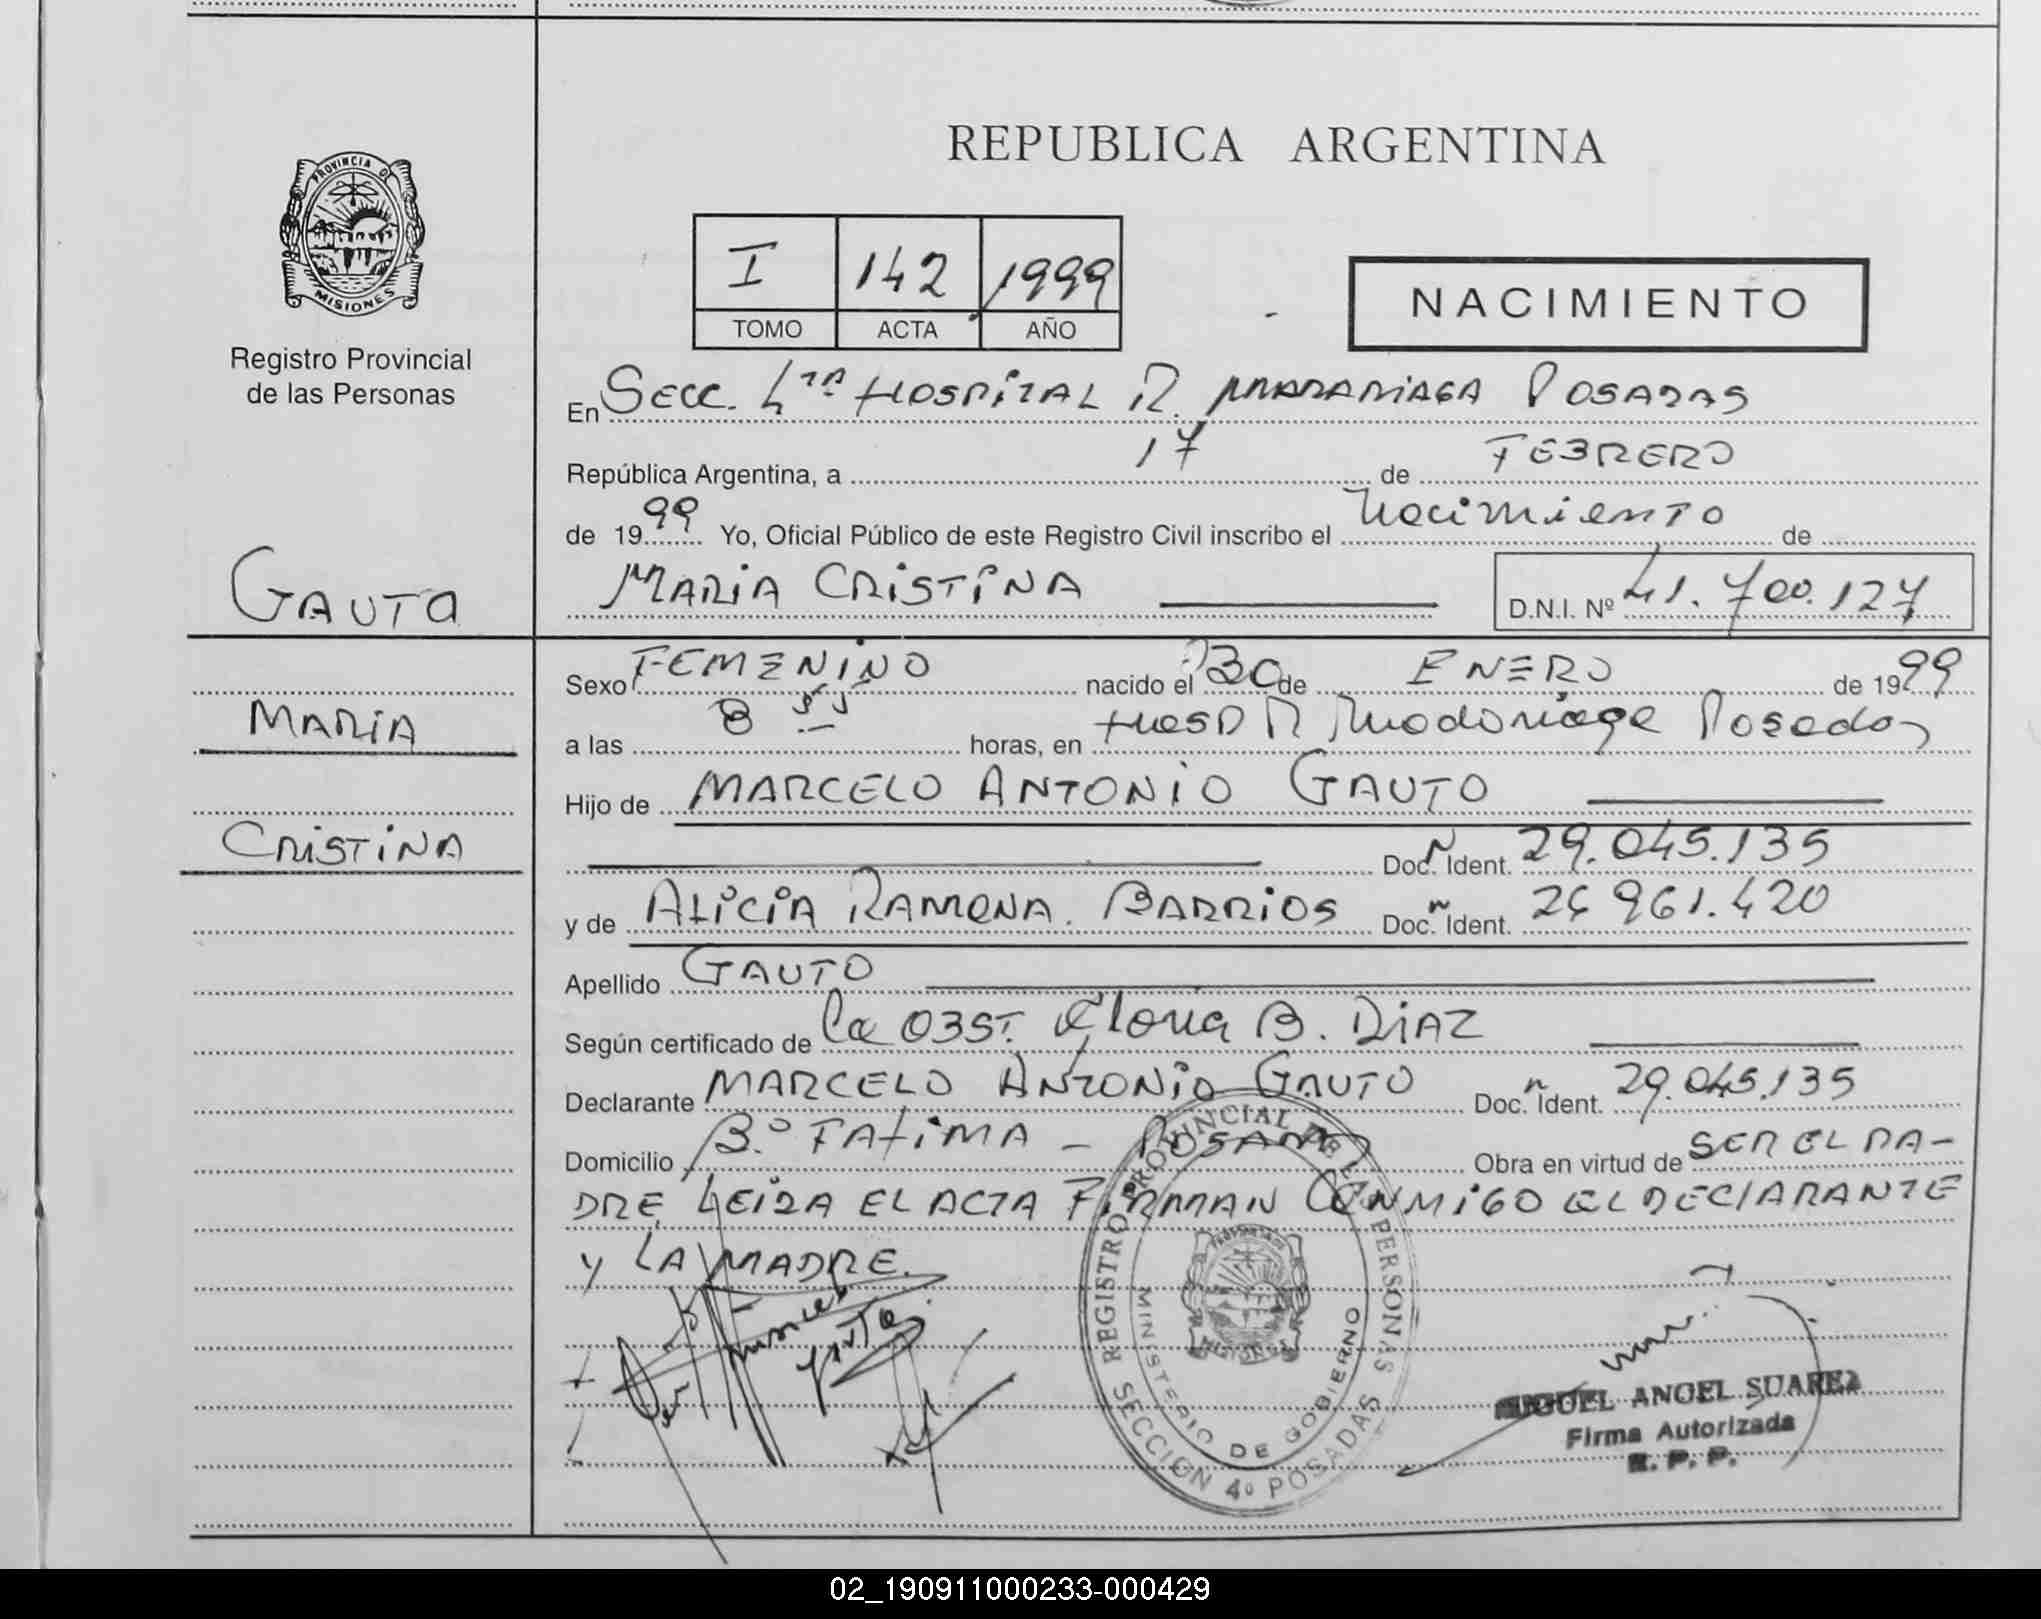 PROVINCIA DE
MISIONES
Registro Provincial
de las Personas
REPUBLICA ARGENTINA
I 142 1999
TOMO ACTA AÑO
NACIMIENTO
En Secc. 4ta HOSPITAL R. MADARIAGA POSADAS
República Argentina, a 17 de FEBRERO
de 1999 Yo, Oficial Público de este Registro Civil inscribo el Nacimiento de
MARIA CRISTINA D.N.I. Nº 41.700.127
GAUTO
MARIA
CRISTINA
Sexo FEMENINO nacido el 30 de ENERO de 1999
a las 8 55 horas, en HOSP R Madariaga Posadas
Hijo de MARCELO ANTONIO GAUTO
Doc. Ident. 29.045.135
y de ALICIA RAMONA BARRIOS Doc. Ident. 26 961.420
Apellido GAUTO
Según certificado de La OBST. Gloria B. DIAZ
Declarante MARCELO ANTONIO GAUTO Doc. Ident. 29.045.135
Domicilio Bº FATIMA - POSADAS Obra en virtud de SER EL PA-
DRE LEIDA EL ACTA FIRMAN CONMIGO EL DECLARANTE
Y LA MADRE.
REGISTRO PROVINCIAL DE LAS PERSONAS
MINISTERIO DE GOBIERNO
SECCION 4º POSADAS
MISIONES
MIGUEL ANGEL SUAREZ
Firma Autorizada
R. P. P.
02_190911000233-000429